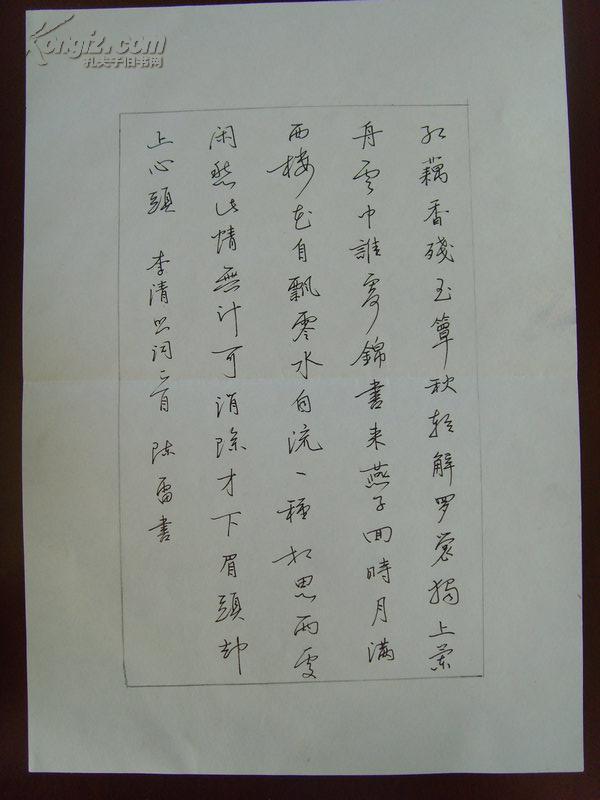 Kongfz.com
孔夫子旧书网
红藕香残玉簟秋轻解罗裳独上兰
舟雲中誰寄錦書来燕子回時月滿
西楼花自飘零水自流一種相思两處
闲愁此情無计可消除才下眉頭却
上心頭 李清照词一首 陈雷書